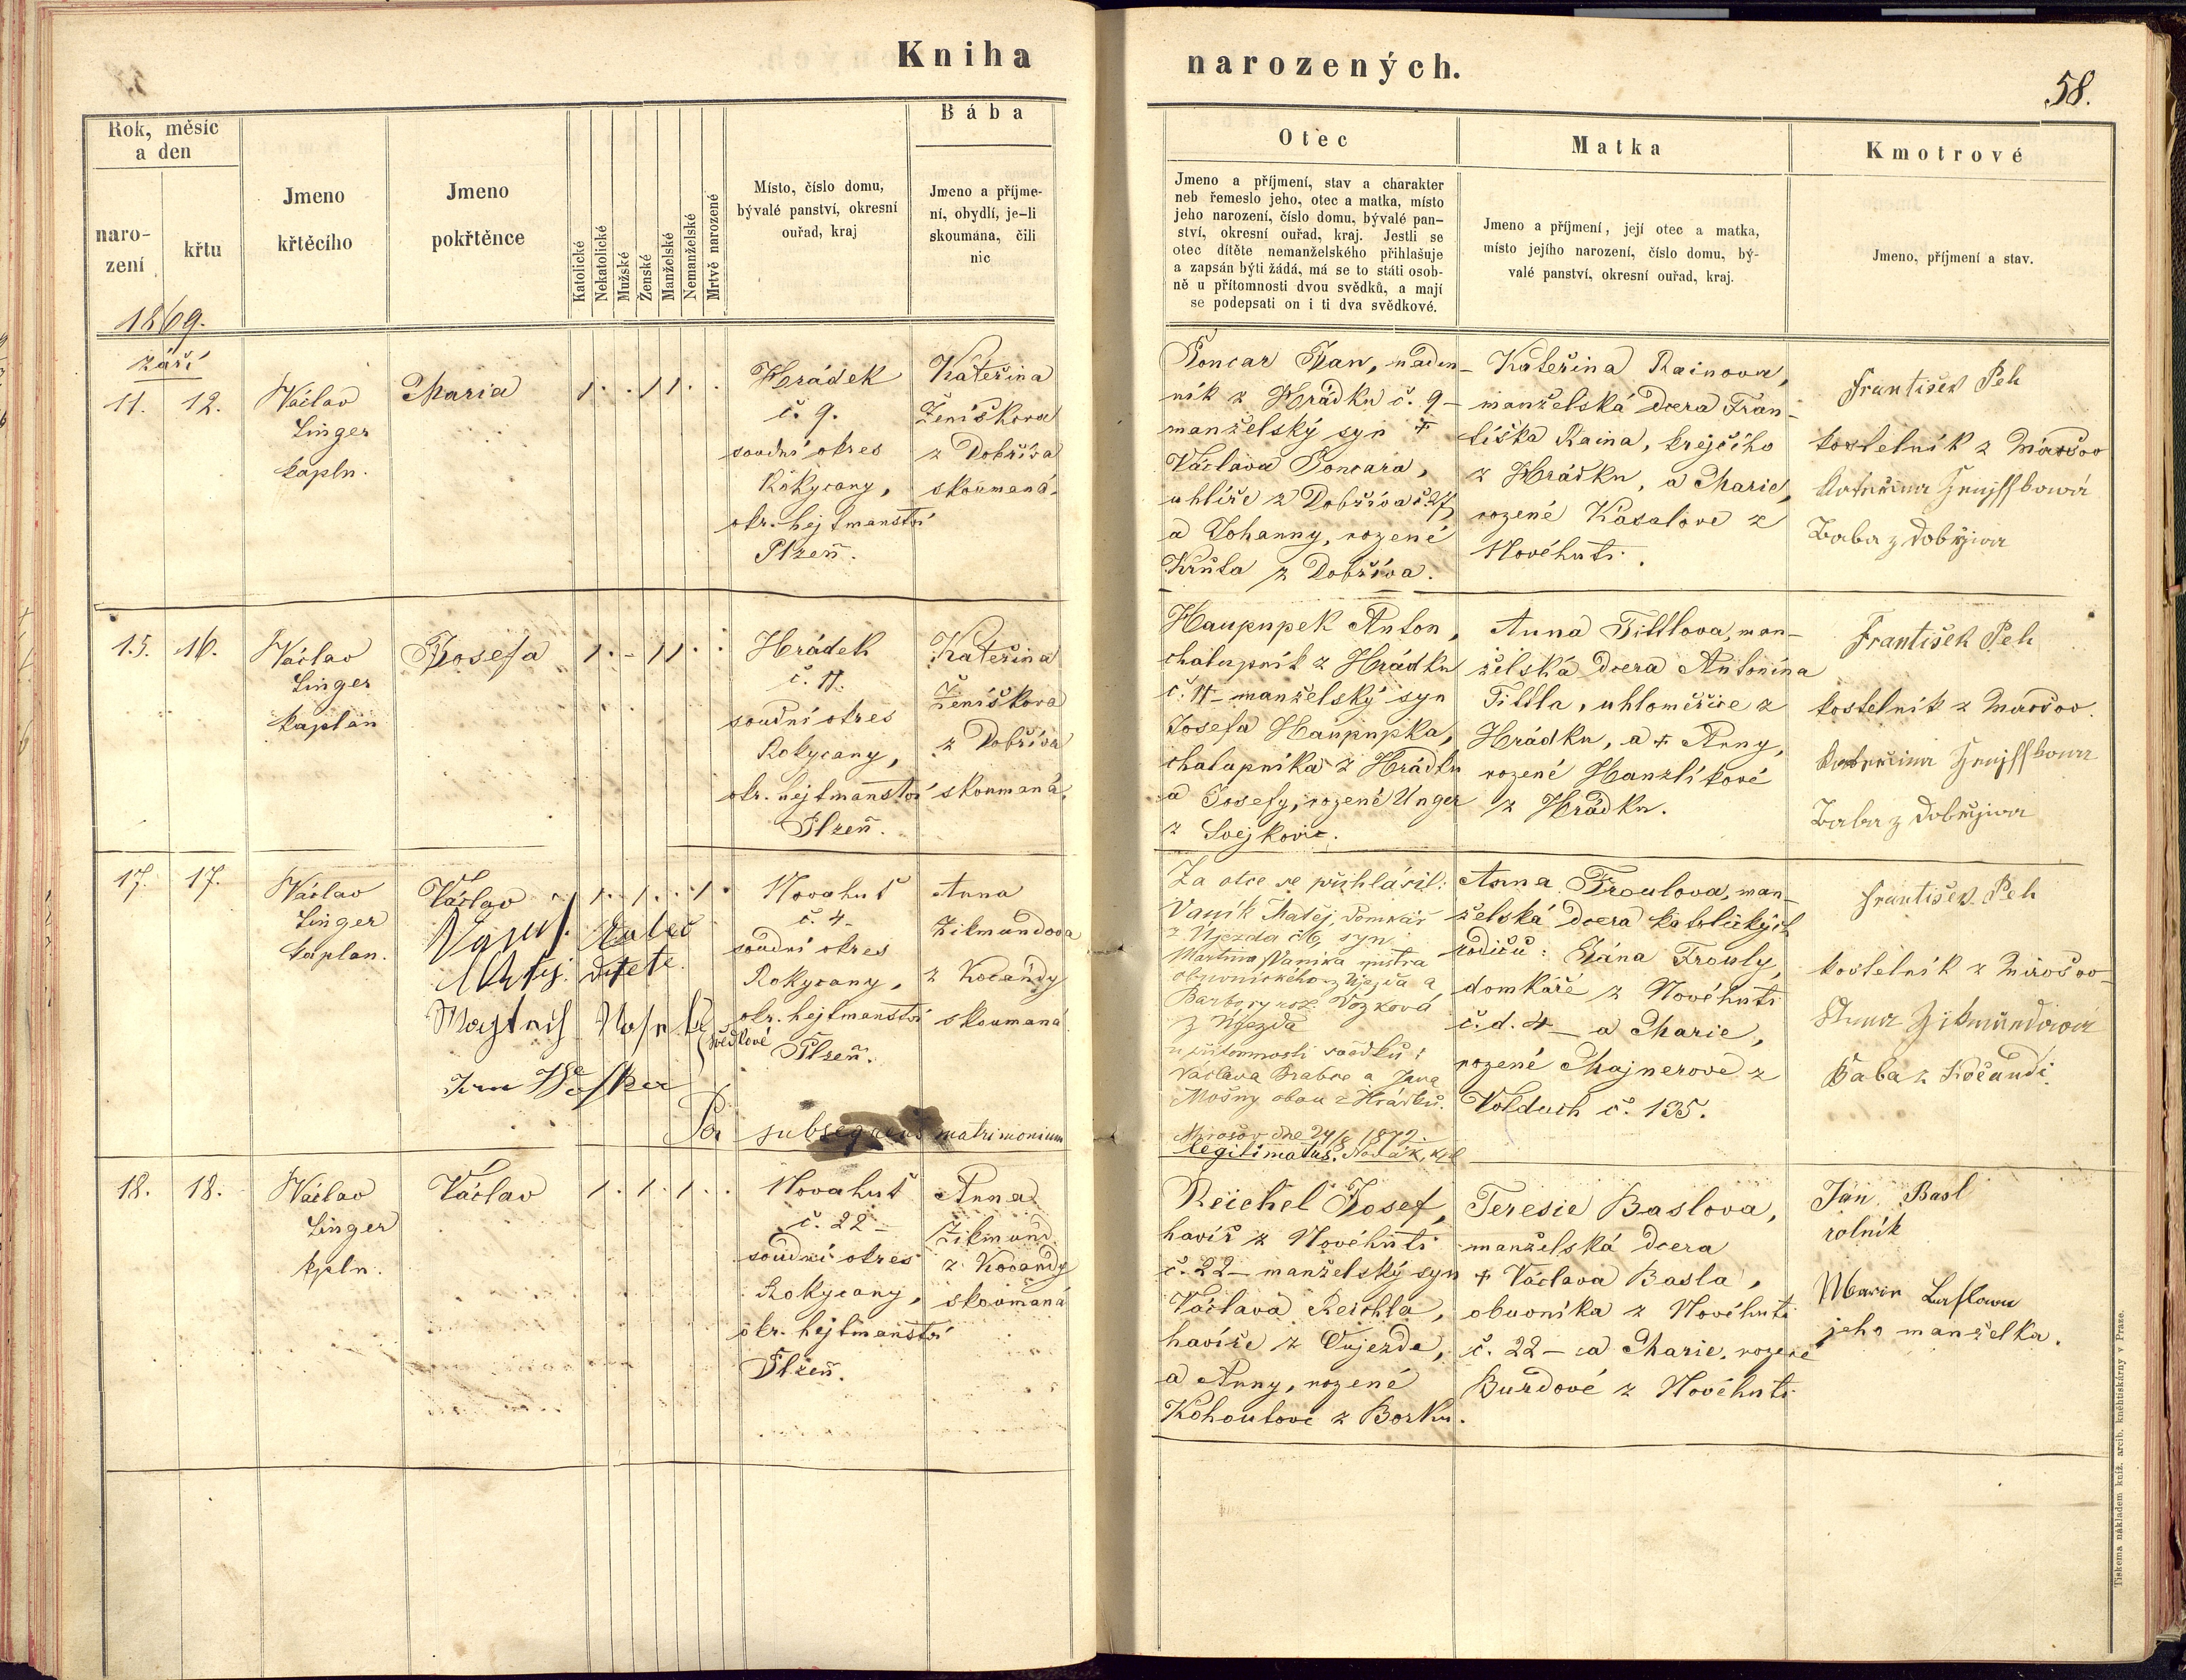 Kniha
narozených.
58.
Rok, měsíc
a den
naro-
zení
křtu
1869.
Jmeno
křtěcího
Jmeno
pokřtěnce
Katolické
Nekatolické
Mužské
Ženské
Manželské
Nemanželské
Mrtvě narozené
Místo, číslo domu,
bývalé panství, okresní
ouřad, kraj
Bába
Jmeno a příjme-
ní, obydlí, je-li
skoumána, čili
nic
Otec
Jmeno a příjmení, stav a charakter
neb řemeslo jeho, otec a matka, místo
jeho narození, číslo domu, bývalé pan-
ství, okresní ouřad, kraj. Jestli se
otec dítěte nemanželského přihlašuje
a zapsán býti žádá, má se to státi osob-
ně u přítomnosti dvou svědků, a mají
se podepsati on i ti dva svědkové.
Matka
Jmeno a příjmení, její otec a matka,
místo jejího narození, číslo domu, bý-
valé panství, okresní ouřad, kraj.
Kmotrové
Jmeno, příjmení a stav.
září
11. 12.
Václav
Singer
kapln.
Maria
1 . . 1 1 . .
Hrádek
č. 9.
soudní okres
Rokycany,
okr. hejtmanství
Plzeň.
Kateřina
Ženíškova
z Dobříva
skoumaná.
Poncar Jan, náden-
ník z Hrádku č. 9 –
manželský syn +
Václava Poncara,
uhlíře z Dobříva č. 27,
a Johanny, rozené
Kruta z Dobříva.
Kateřina Rainova,
manželská dcera Fran-
tiška Raina, krejčího
z Hrádku, a Marie,
rozené Kasalove z
Novéhuti.
František Peh
kostelník z Mirošov
Baba z Dobřjwa
15. 16.
Václav
Singer
kaplan
Josefa
1 . – 1 1 . .
Hrádek
č. 11.
soudní okres
Rokycany,
okr. hejtmanství
Plzeň.
Kateřina
Ženíškova
z Dobříva
skoumaná.
Haupupek Anton,
chalupník z Hrádku
č. 11 – manželský syn
Josefa Haupupka,
chalupníka z Hrádku
a Josefy, rozené Unger
z Svejkovic.
Anna Tittlova, man-
želská dcera Antonína
Tittla, uhloměřiče z
Hrádku, a + Anny,
rozené Hanzlíkové
z Hrádku.
František Peh
kostelník z Mirošov.
Baba z Dobřjwa
17. 17.
Václav
Singer
kaplan.
Václav
dítěte
svědkové
1 . 1 . . 1 .
Novahuť
č. 4
soudní okres
Rokycany,
okr. hejtmanství
Plzeň.
Anna
Zikmundova
z Kocandy
skoumaná
Per subsequens matrimonium
Za otce se přihlásil:
Vaník Matěj domkář
z Újezda č. 6, syn
Martina Vaníka mistra
obuvnického z Újezda a
Barbory roz. Vozková
z Újezda
u přítomnosti svědků:
Václava Brabce a Jana
Mošny obou z Hrádku.
Mirošov dne 24/8 1872.
legitimatus.
Anna Froulova, man-
želská dcera katolických
rodičů: Jána Frouly,
domkáře z Novéhuti
č. d. 4 – a Marie,
rozené Majnerove z
Volduch č. 135.
František Peh
kostelník z Mirošov
Anna Zikmundowá
Baba z Kočandi.
18. 18.
Václav
Singer
kpln.
Václav
1 . 1 . 1 . .
Novahuť
č. 22 –
soudní okres
Rokycany,
okr. hejtmanství
Plzeň.
Anna
Zikmund.
z Kocandy
skoumaná
Reichel Josef,
havíř z Novéhuti
č. 22 – manželský syn
Václava Reichla,
havíře z Oujezda,
a Anny, rozené
Kohoutove z Borku.
Teresie Baslova,
manželská dcera
+ Václava Basla,
obuvníka z Novéhuti
č. 22 – a Marie, rozené
Burdové z Novéhuti
Jan Basl
rolník
Marie
jeho manželka.
Tiskema nákladem kníž. arcib. kněhtiskárny v Praze.